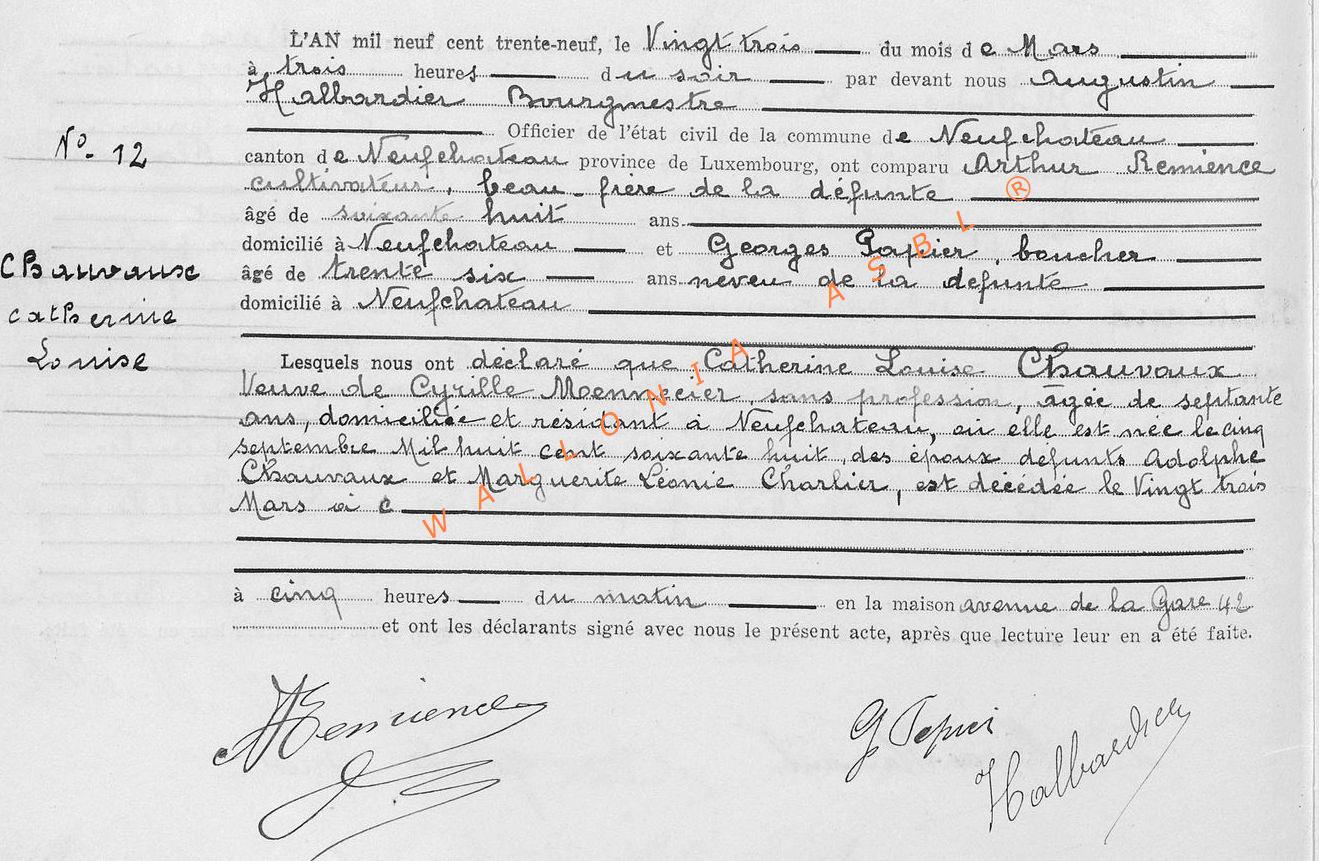 L'AN mil neuf cent trente-neuf, le Vingt trois du mois de Mars
à trois heures du soir par devant nous Augustin
Halbardier Bourgmestre
Officier de l'état civil de la commune de Neufchateau
N° 12
canton de Neufchateau province de Luxembourg, ont comparu Arthur Remience
cultivateur, beau-frère de la défunte
âgé de soixante huit ans
domicilié à Neufchateau et Georges Papier, boucher
Chauvaux
âgé de trente six ans neveu de la défunte
Catherine
domicilié à Neufchateau
Louise
Lesquels nous ont déclaré que Catherine Louise Chauvaux
Veuve de Cyrille sans profession, âgée de septante
ans, domiciliée et résidant à Neufchateau, où elle est née le cinq
septembre Mil huit cent soixante huit, des époux defunts Adolphe
Chauvaux et Marguerite Léonie Charlier, est décédée le Vingt trois
Mars à c
à cinq heures du matin en la maison avenue de la Gare 42
et ont les déclarants signé avec nous le présent acte, après que lecture leur en a été faite.
WALLONIA ASBL ®
ARemience
G Papier
Halbardier